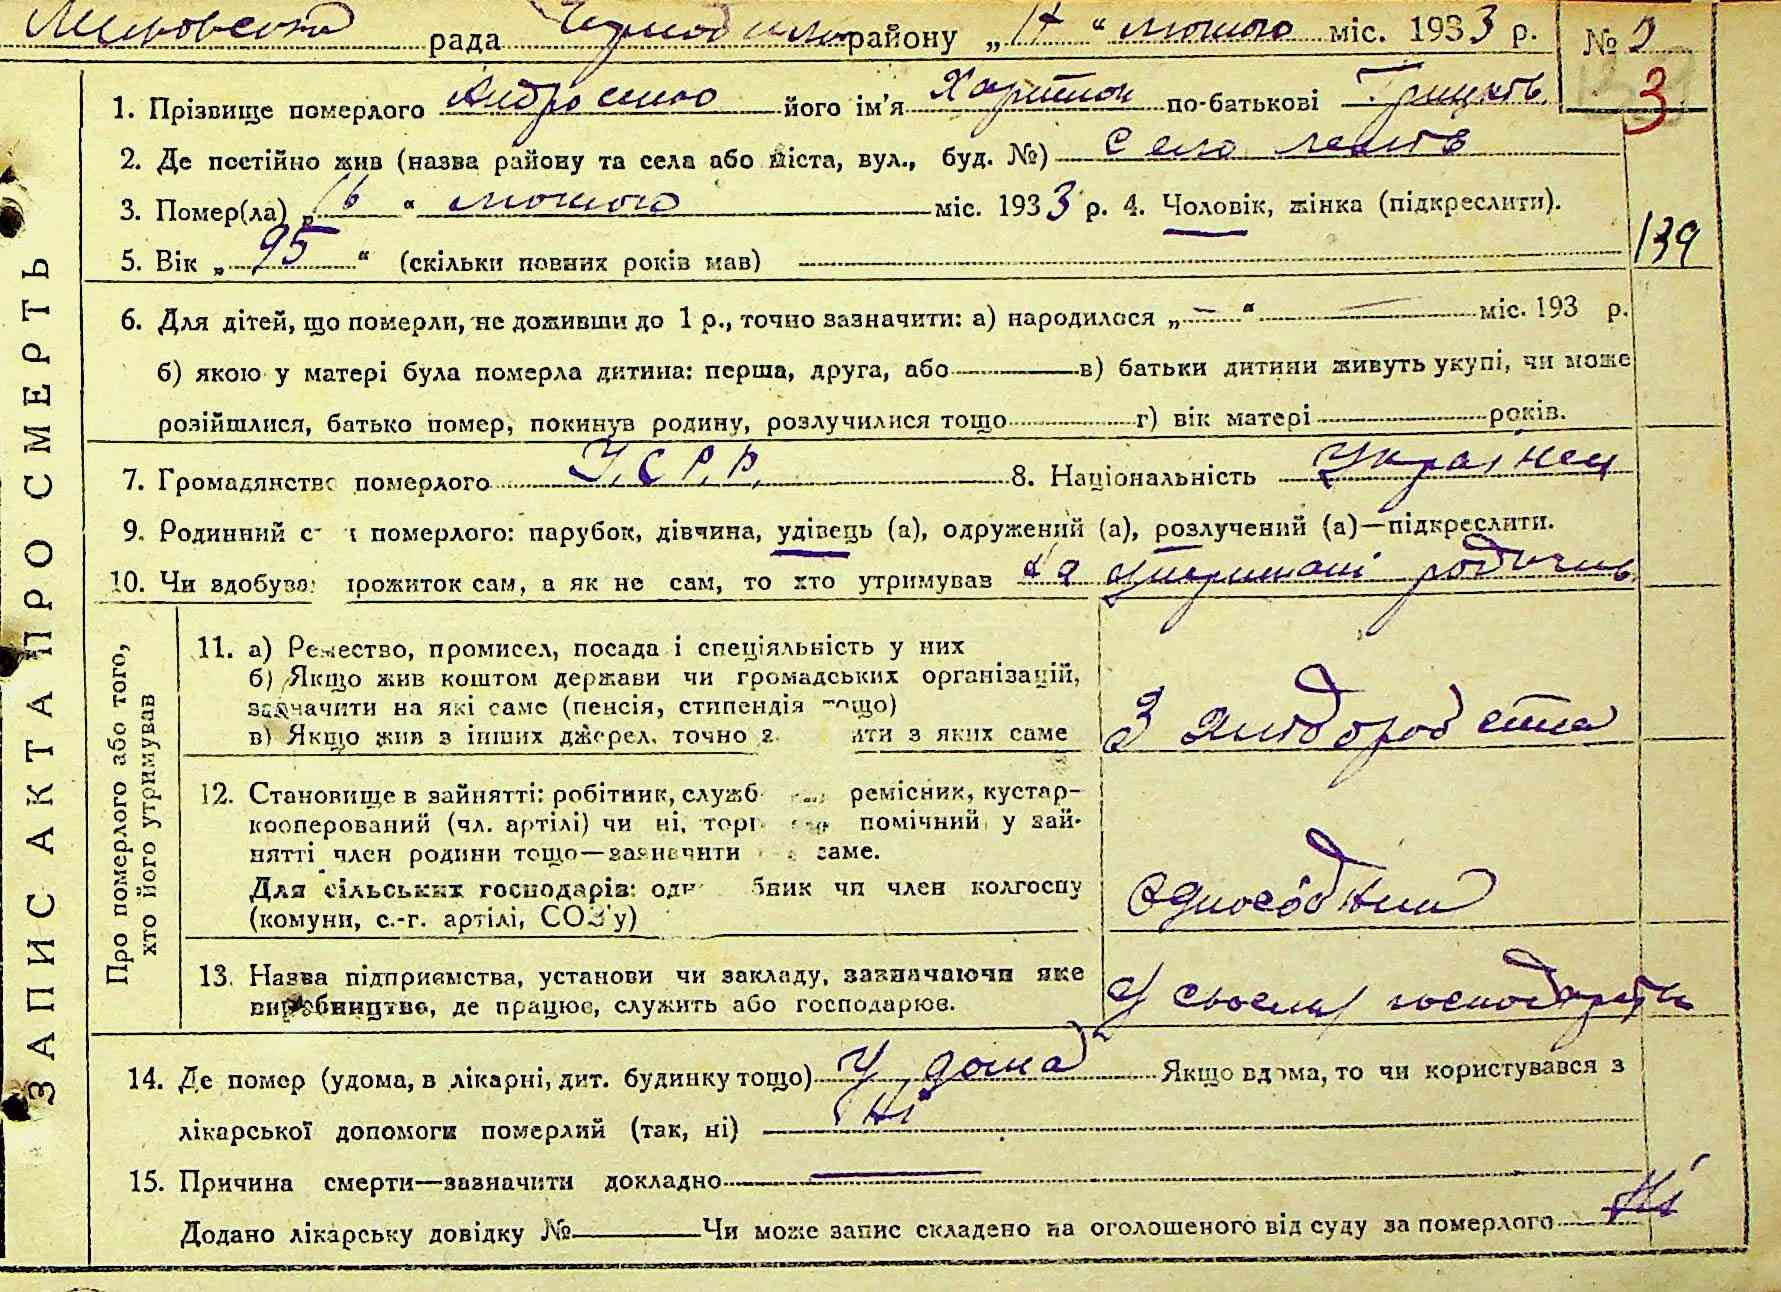 рада району „17“ лютого міс. 1933 р. № 3
3
1. Прізвище померлого його ім'я Харитон по-батькові
2. Де постійно жив (назва району та села або міста, вул., буд. №) Село
3. Помер(ла) „16“ лютого міс. 1933 р. 4. Чоловік, жінка (підкреслити).
5. Вік „95“ (скільки повних років мав)
139
6. Для дітей, що померли, не доживши до 1 р., точно зазначити: а) народилося „—“ — міс. 193 р.
б) якою у матері була померла дитина: перша, друга, або в) батьки дитини живуть укупі, чи може
розійшлися, батько помер, покинув родину, розлучилися тощо г) вік матері років.
7. Громадянство померлого У.С.Р.Р. 8. Національність Українец
9. Родинний с н померлого: парубок, дівчина, удівець (а), одружений (а), розлучений (а)—підкреслити.
10. Чи здобував прожиток сам, а як не сам, то хто утримував на утримані родичів
ЗАПИС АКТА ПРО СМЕРТЬ
Про померлого або того,
хто його утримував
11. а) Ремество, промисел, посада і спеціяльність у них
б) Якщо жив коштом держави чи громадських організацій,
зазначити на які саме (пенсія, стипендія тощо)
в) Якщо жив з інших джерел, точно з ити з яких саме
З
12. Становище в зайнятті: робітник, службо ремісник, кустар-
кооперований (чл. артілі) чи ні, торг помічний у зай-
нятті член родини тощо—зазначити саме.
Для сільських господарів: одн бник чи член колгоспу
(комуни, с.-г. артілі, СОЗ'у)
Односóбник
13. Назва підприємства, установи чи закладу, зазначаючи яке
виробництво, де працює, служить або господарює.
У своєму господарстві
14. Де помер (удома, в лікарні, дит. будинку тощо) У дома Якщо вдома, то чи користувався з
лікарської допомоги померлий (так, ні) Ні
15. Причина смерти—зазначити докладно —
Додано лікарську довідку № Чи може запис складено на оголошеного від суду за померлого Ні